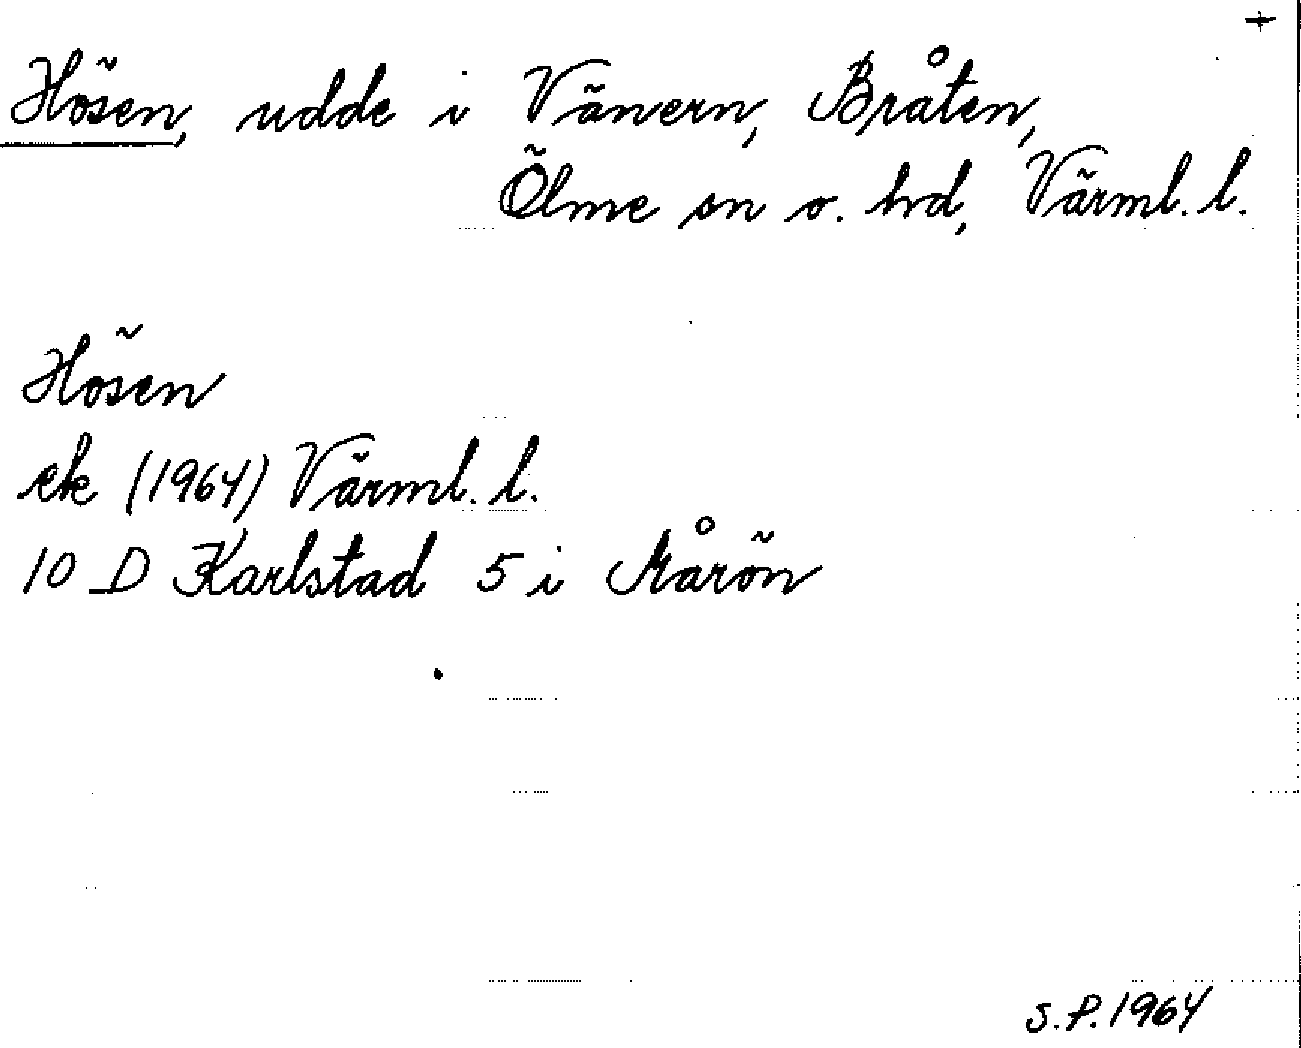 +
Hösen, udde i Vänern, Bråten,
Ölme sn o. hd, Värml. l.
Hösen
ek (1964) Värml. l.
10 D Karlstad 5 i Mårön
S.P. 1964